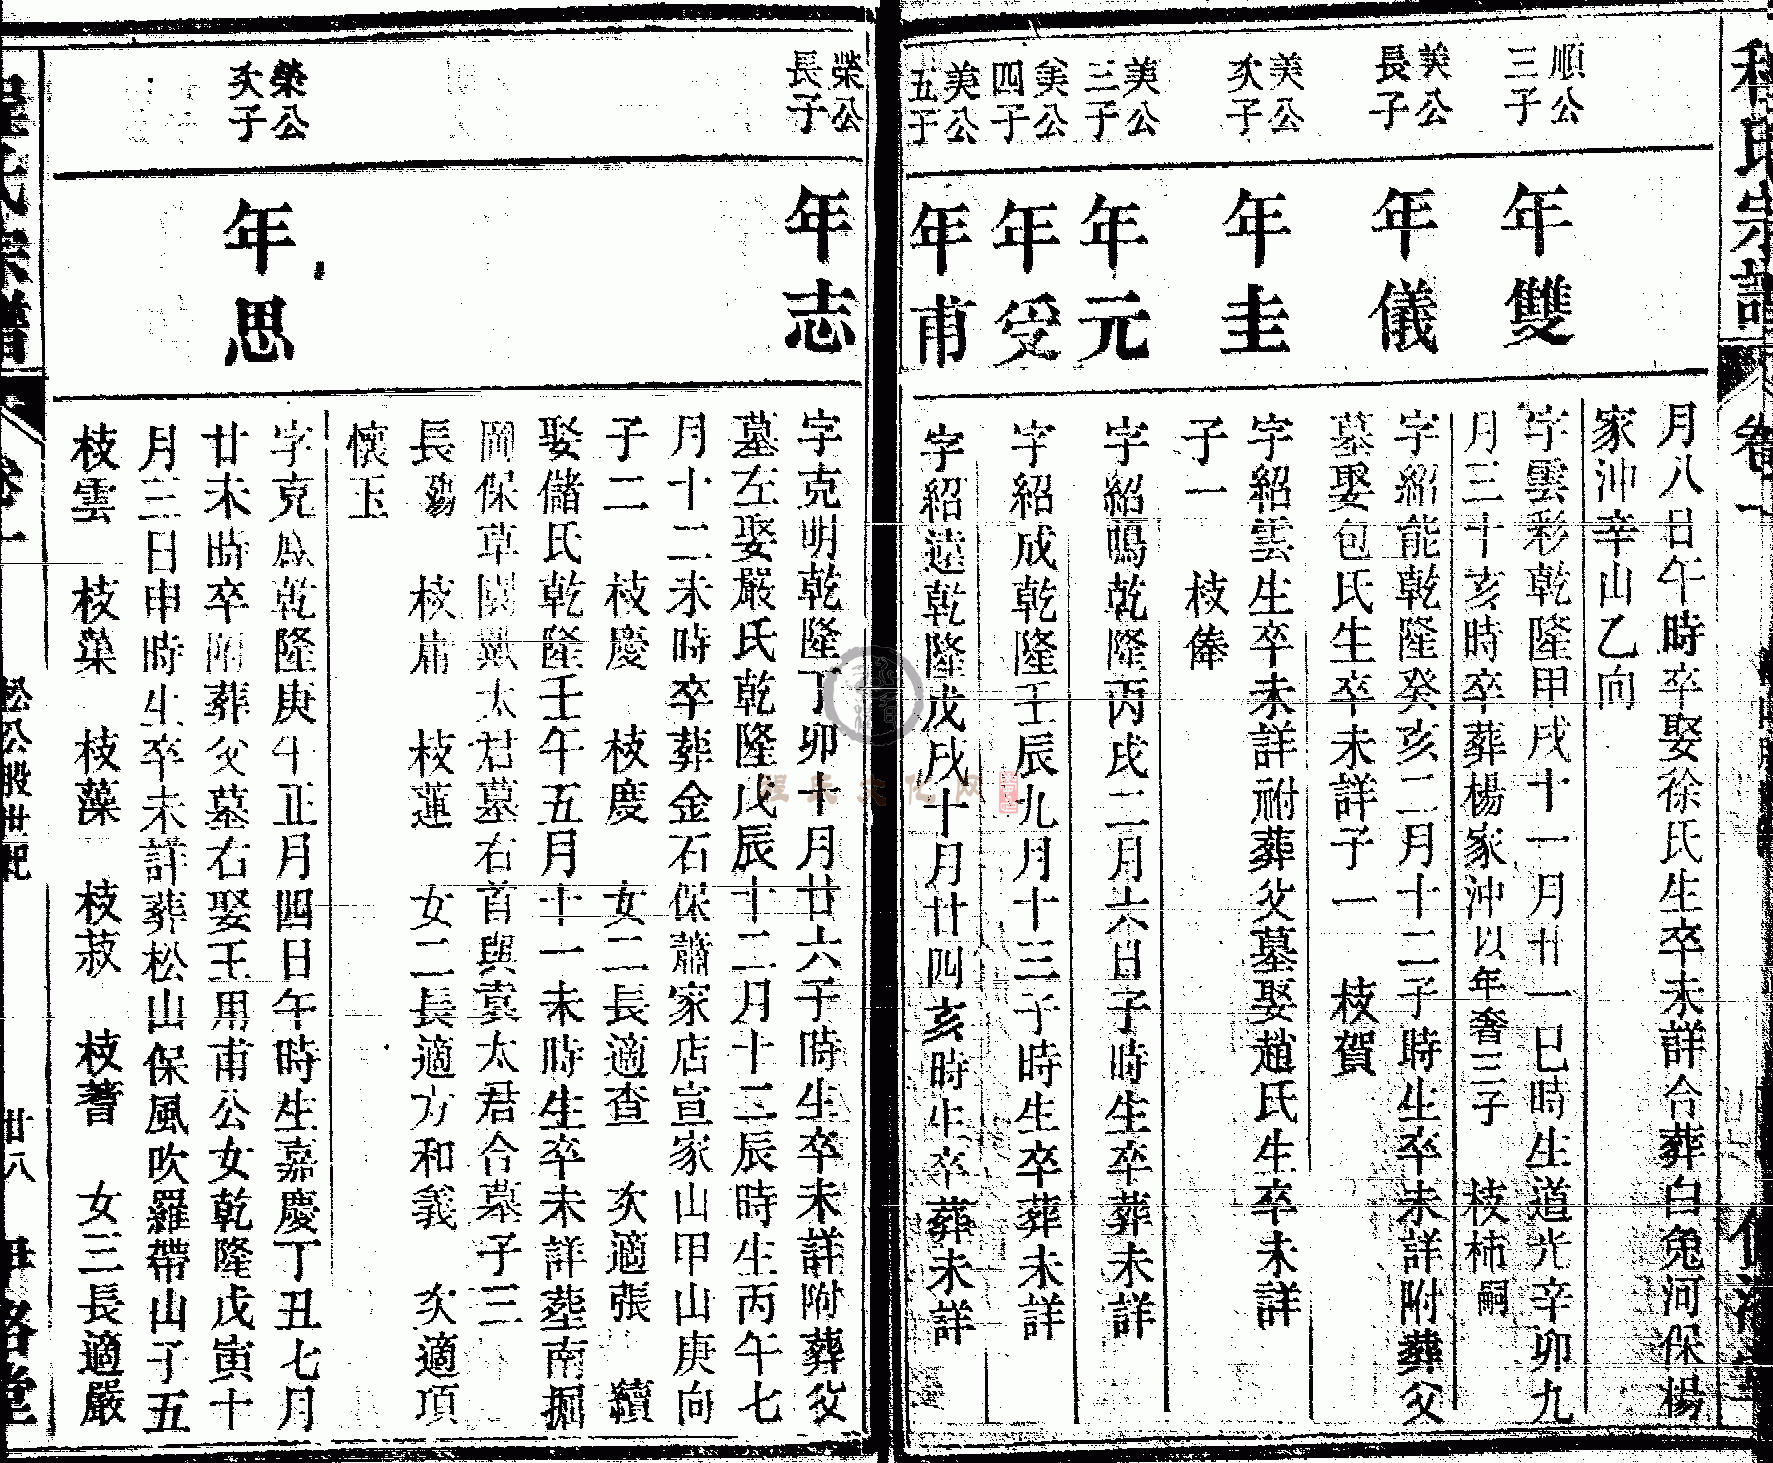 程氏宗譜
卷一
伊洛堂
月八日午時卒娶徐氏生卒未詳合葬白兔河保楊
家沖辛山乙向
順公
三子
年雙
字雲彩乾隆甲戌十一月廿一巳時生道光辛卯九
月三十亥時卒葬楊家沖以年奢三子 枝柿嗣
美公
長子
年儀
字紹能乾隆癸亥二月十二子時生卒未詳附葬父
墓娶包氏生卒未詳子一 枝賀
美公
次子
年圭
字紹雲生卒未詳祔葬父墓娶趙氏生卒未詳
子一 枝俸
美公
三子
年元
字紹鳴乾隆丙戌二月六日子時生卒葬未詳
美公
四子
年受
字紹成乾隆壬辰九月十三子時生卒葬未詳
美公
五子
年甫
字紹遠乾隆戊戌十月廿四亥時生卒葬未詳
榮公
長子
年志
字克明乾隆丁卯十月廿六子時生卒未詳附葬父
墓左娶嚴氏乾隆戊辰十二月十三辰時生丙午七
月十二未時卒葬金石保蕭家店宣家山甲山庚向
子二 枝慶 枝慶 女二長適查 次適張 續
娶儲氏乾隆壬午五月十一未時生卒未詳塟南掘
岡保草園戴太君墓右首與袁太君合墓子三
長殤 枝庸 枝蓮 女二長適方和義 次適項
懷玉
榮公
次子
年思
字克庶乾隆庚午正月四日午時生嘉慶丁丑七月
廿未時卒附葬父墓右娶王用甫公女乾隆戊寅十
月三日申時生卒未詳葬松山保風吹羅帶山子五
枝雲 枝葉 枝藻 枝菽 枝蓍 女三長適嚴
程氏宗譜
卷一
松公股世紀
廿八
伊洛堂
程氏文化网